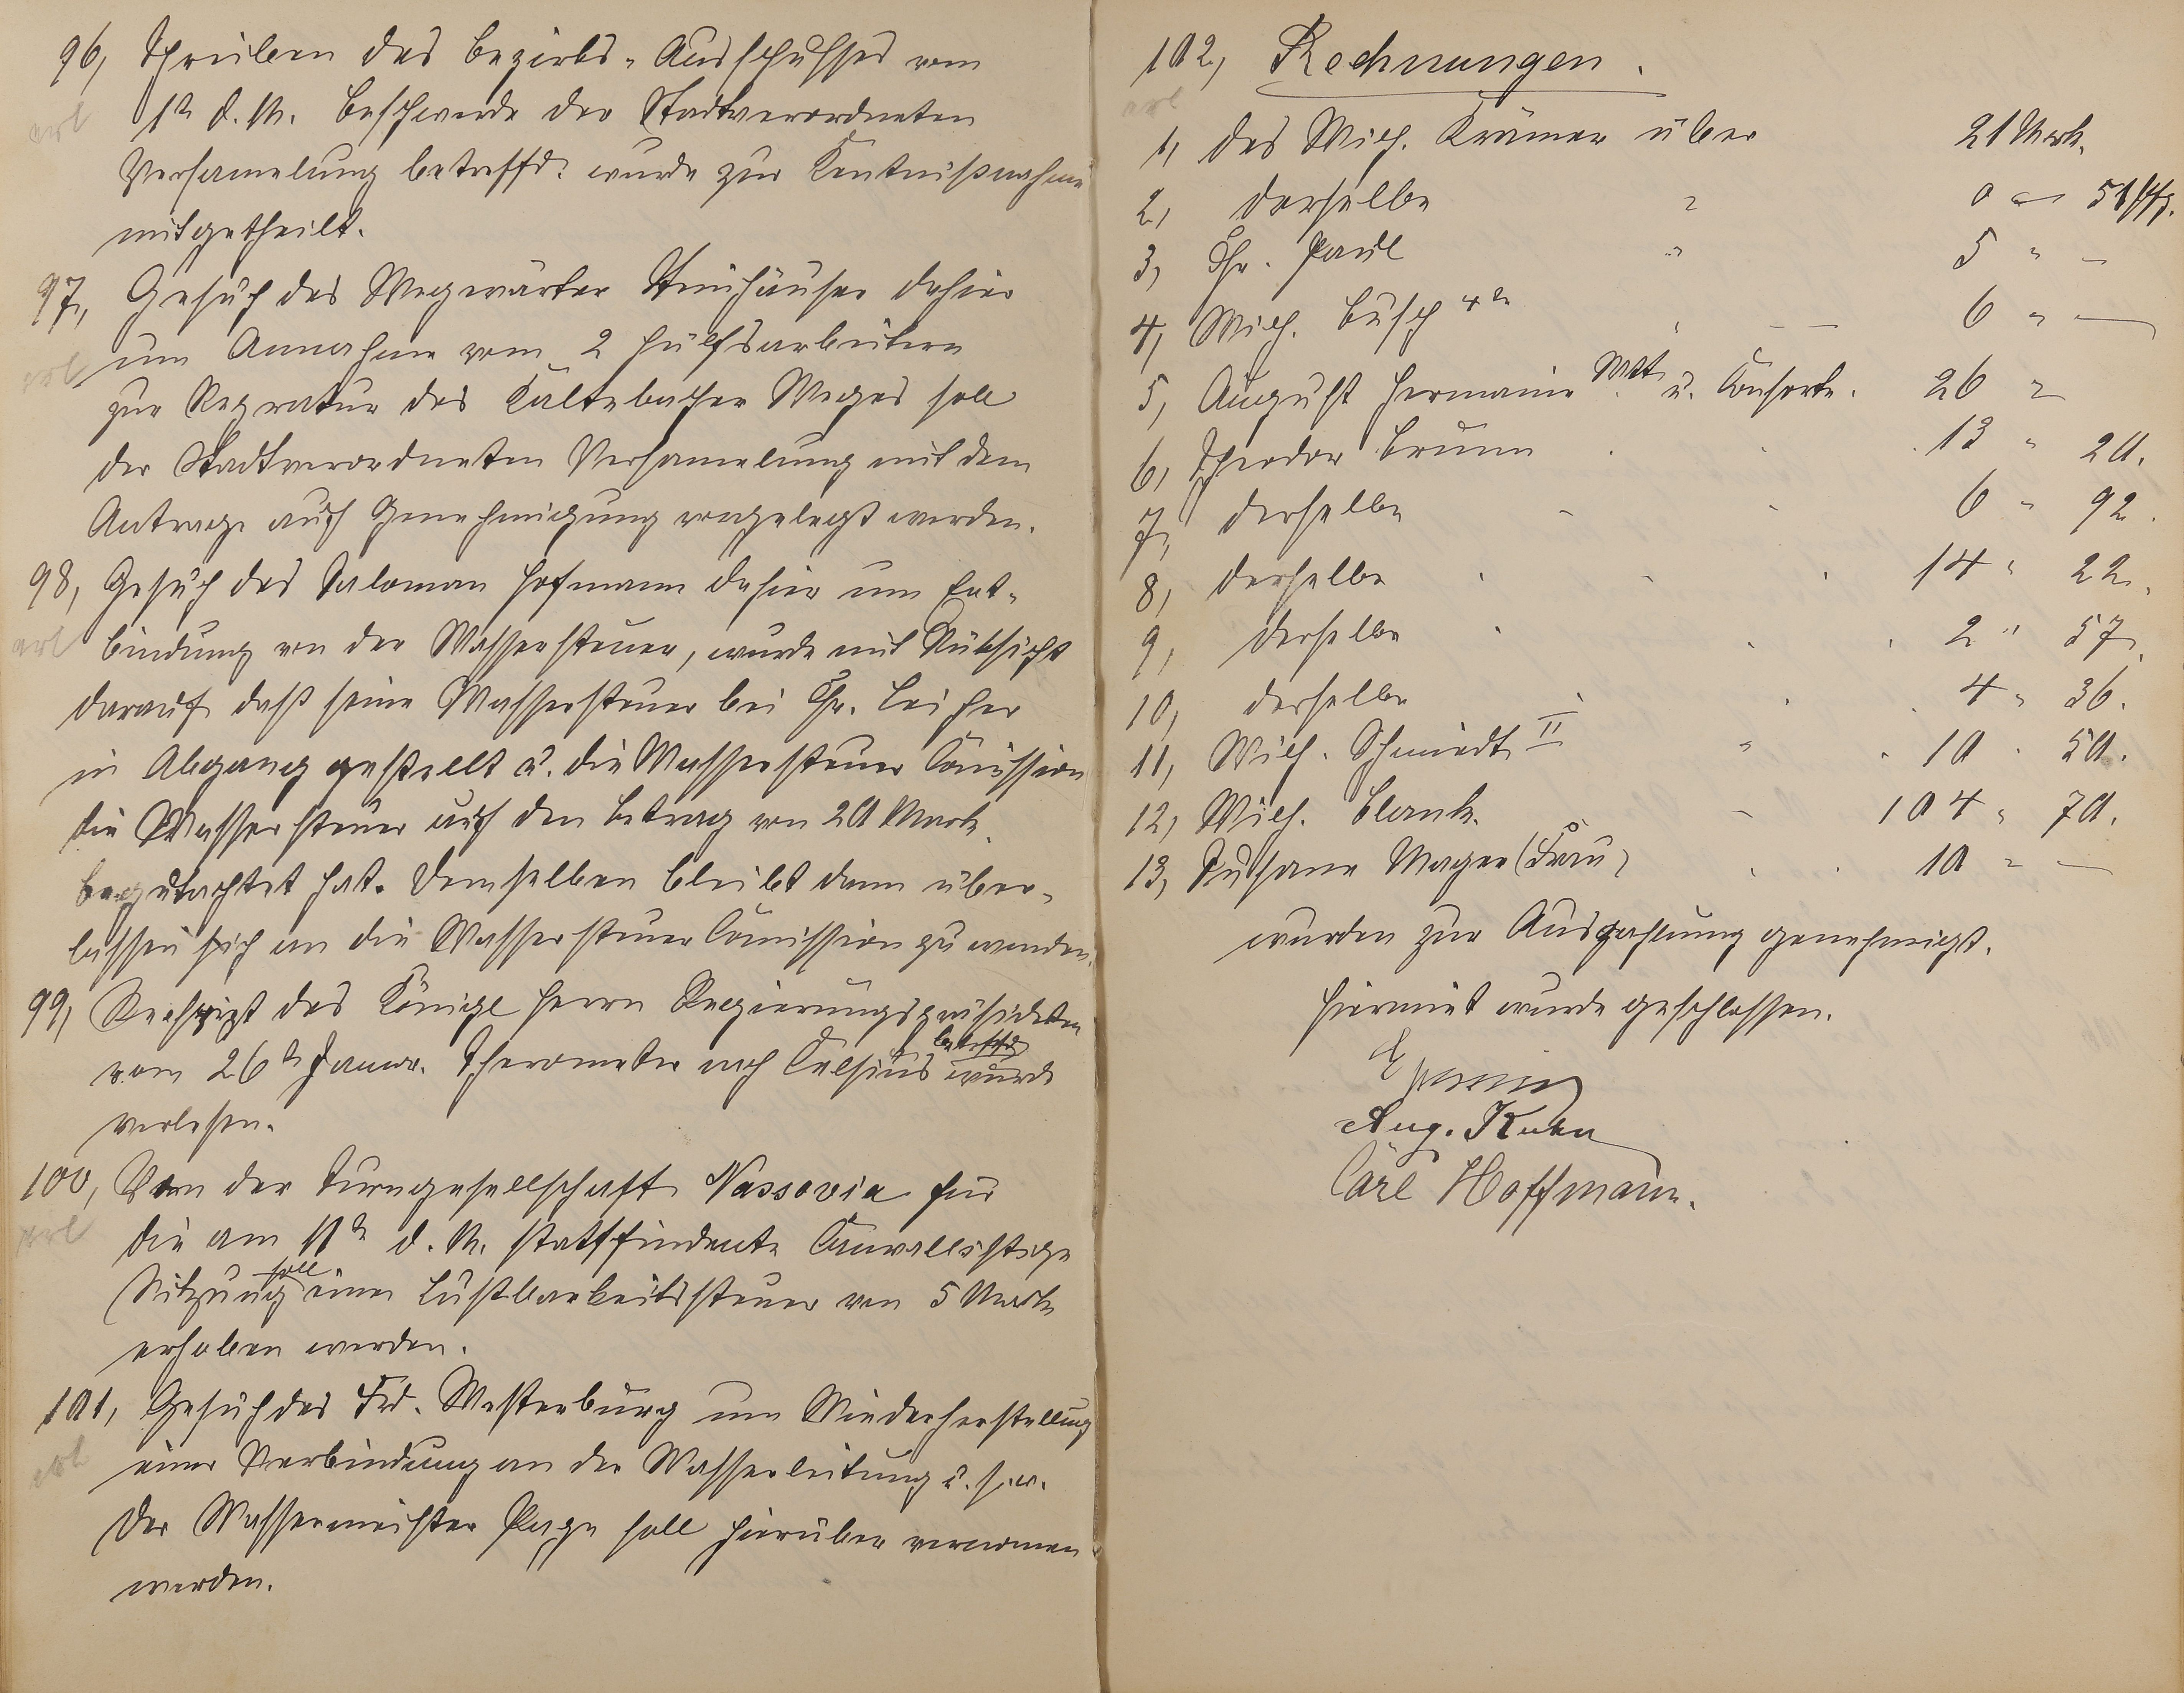 96, Schreiben des Bezirks-Ausschusses vom
1ten d. M. Beschwerde der Stadtverordneten
Versamelung betreffd. wurde zur Kentnißnahme
mitgetheilt.
erl
97, Gesuch des Wegewärter Steinhäuser dahier
um Annahme vom 2 Hülfsarbeitern
zur Repratur des Kaltebacher Weges soll
der Stadtverordneten Versamelung mit dem
Antrage auf Genehmigung vorgelegt werden.
erl
98, Gesuch des Saloman Hofmann dahier um Ent-
bindung von der Wassersteuer, wurde mit Rüksicht
darauf daß seine Wassersteuer bei Chr. Leicher
in Abgang gestellt u. die Wassersteuer Comission
die Wassersteuer auf den Betrag von 20 Mark
begutachtet hat. Demselben bleibt dann über-
lassen sich an die Wassersteuer Comission zu wenden.
erl
99, Rescript des Königl Herrn Regierungspräsidten
vom 26ten Januar. Therometer nach Celsius betreffd wurde
verlesen.
100, Von der Turngesellschaft Nassovia für
die am 11ten d. M. stattfindente Carnvallistige
Sitzung soll eine Lustbarkeitssteuer von 5 Mark
erhoben werden.
erl
101, Gesuch des Frd. Westerburg um Wiederherstellung
einer Verbindung an der Wasserleitung u. s. w.
Der Wassermeister Page soll hierüber vernomen
werden.
erl
102, Rechnungen.
erl
1, des Wilh. Krämer über 21 Mark.
2, derselbe " 0 " 51 Pfg.
3, Chr. Paul " 5 " –
4, Wilh. Busch 4te " 6 " –
5, August Hermanie Wtt. u. Consorte. 26 "
6, Theodor Brumm 13 " 20.
7, derselbe - - 6 " 92.
8, derselbe 14 " 22.
9, derselbe 2 " 57.
10, derselbe 4 " 36.
11, Wilh. Schmidt II " 10 . 50.
12, Wilh. Blank. - 104 " 70.
13, Susane Mager (Frau) 10 " –
wurden zur Auszahlung genehmigt.
Hiermit wurde geschlossen.
Aug. Kuhn
Carl Hoffmann.